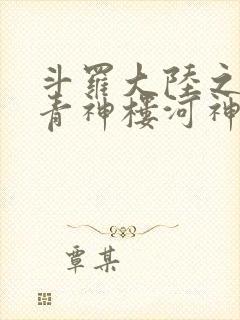 斗羅大陸之
青神樓河神
覃某